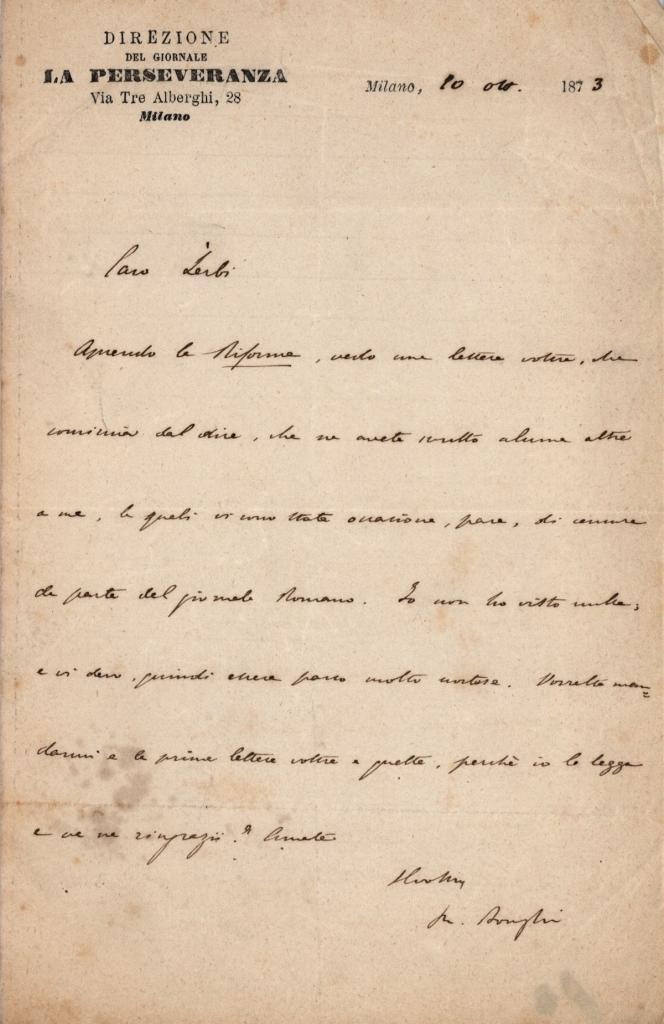 DIREZIONE
DEL GIORNALE
LA PERSEVERANZA
Via Tre Alberghi, 28
Milano
Milano, 10 ott. 1873
Caro Zerbi
Aprendo la Riforma, vedo una lettera vostra, che
comincia dal dire, che ne avete scritto alcune altre
a me, le quali vi sono state occasione, pare, di censure
da parte del giornale Romano. Io non ho visto nulla;
e vi devo, quindi essere parso molto scortese. Vorreste man=
darmi e la prima lettera vostra e questa, perchè io le legga
e ve ne ringrazii? Amate
Il vostro
R. Bonghi